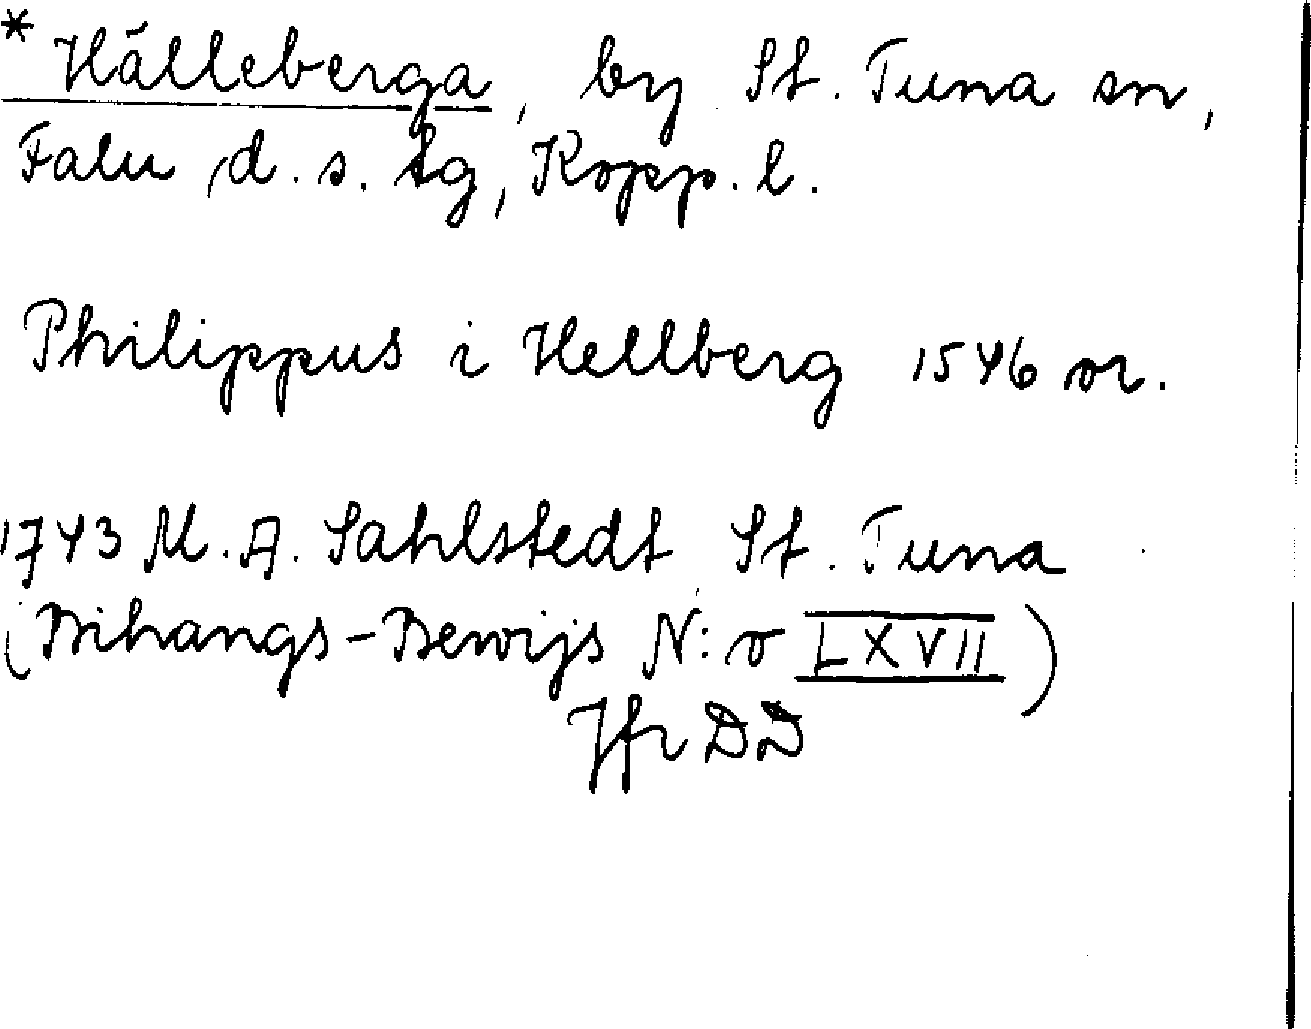 * Hälleberga, by St. Tuna sn,
Falu d. s. tg, Kopp. l.
Philippus i Hellberg 1546 or.
1743 M. A. Sahlstedt St. Tuna
(Bihangs-Bewijs N:o LXVII)
Jfr DD